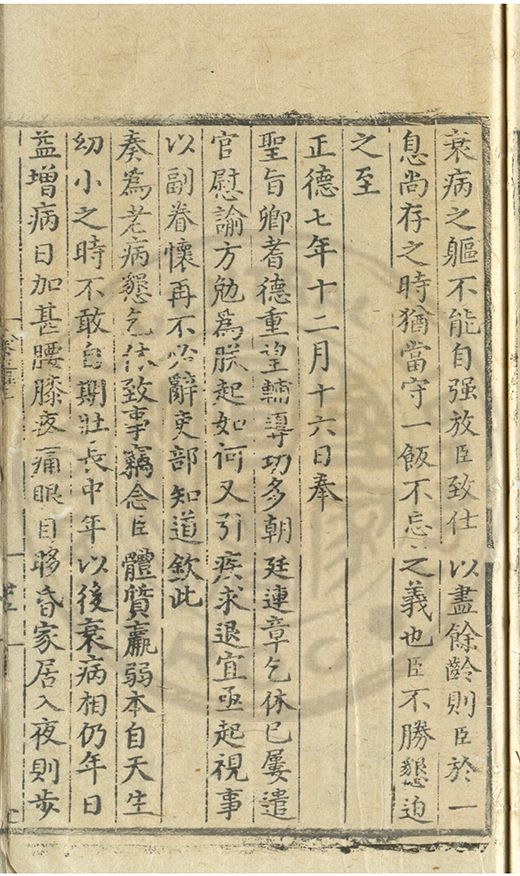 衰病之軀不能自强放臣致仕以盡餘齡則臣於一
息尚存之時猶當守一飯不忘之義也臣不勝懇迫
之至
正德七年十二月十六日奉
聖旨卿耆德重望輔導功多朝廷連章乞休已屢遣
官慰諭方勉爲朕起如何又引疾求退宜亟起視事
以副眷懷再不必辭吏部知道欽此
奏爲老病懇乞休致事竊念臣體質羸弱本自天生
幼小之時不敢自期壯長中年以後衰病相仍年日
益增病日加甚腰膝疼痛眼目昏家居入夜則步